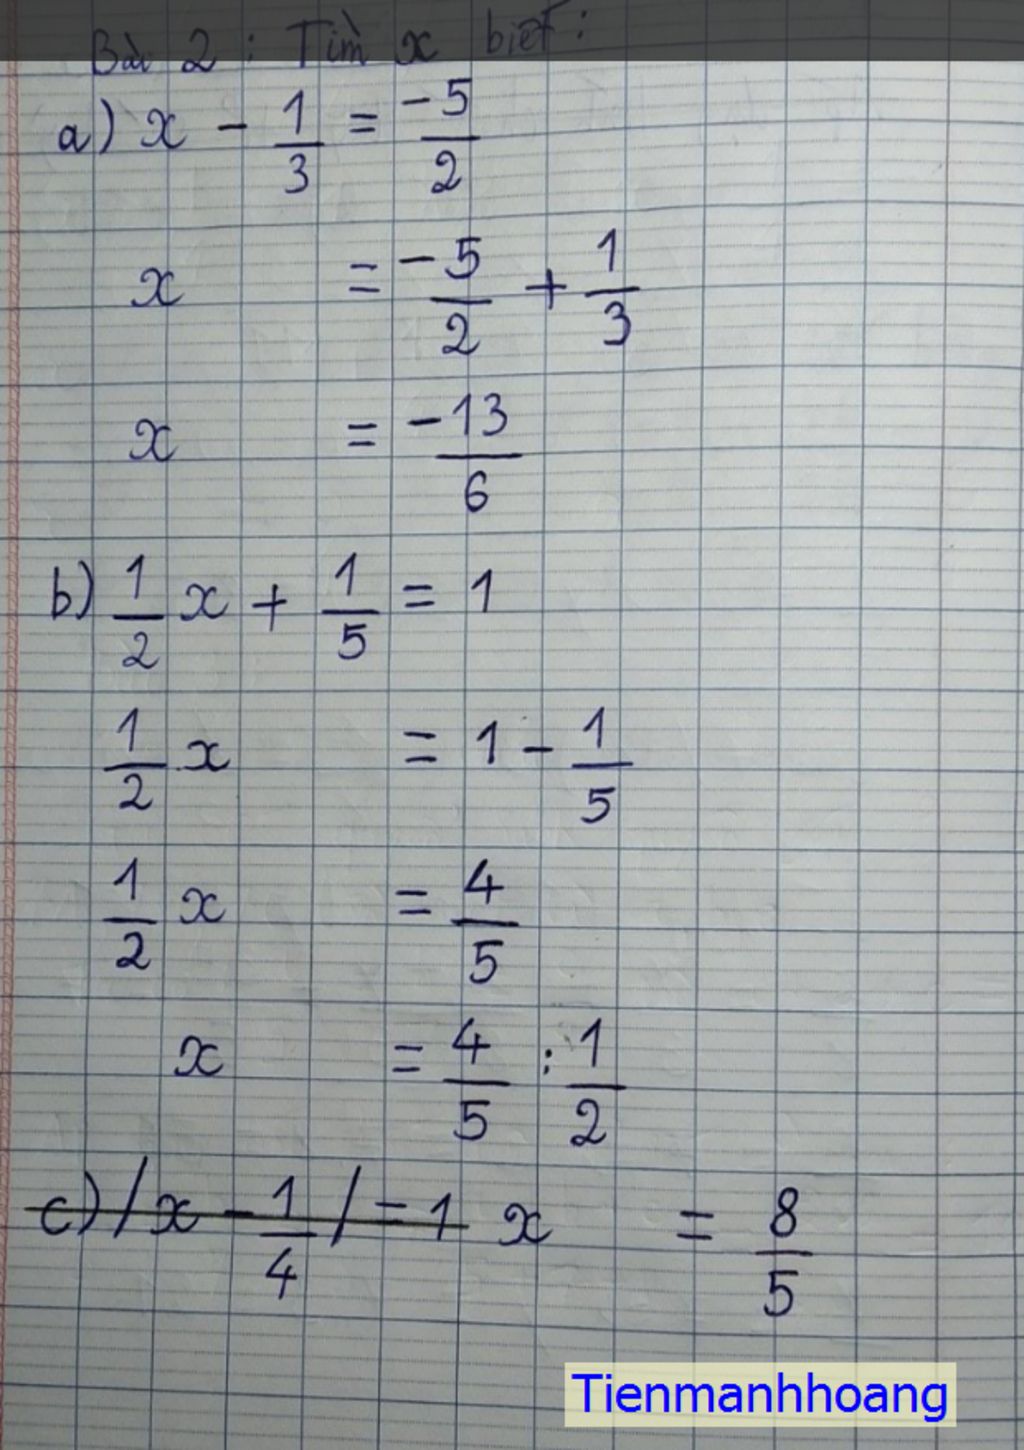 Bài 2 : Tìm x biết :
a) x - 1/3 = -5/2
x = -5/2 + 1/3
x = -13/6
b) 1/2 x + 1/5 = 1
1/2 x = 1 - 1/5
1/2 x = 4/5
x = 4/5 : 1/2
c) /x - 1/4 / = 1 x = 8/5
Tienmanhhoang